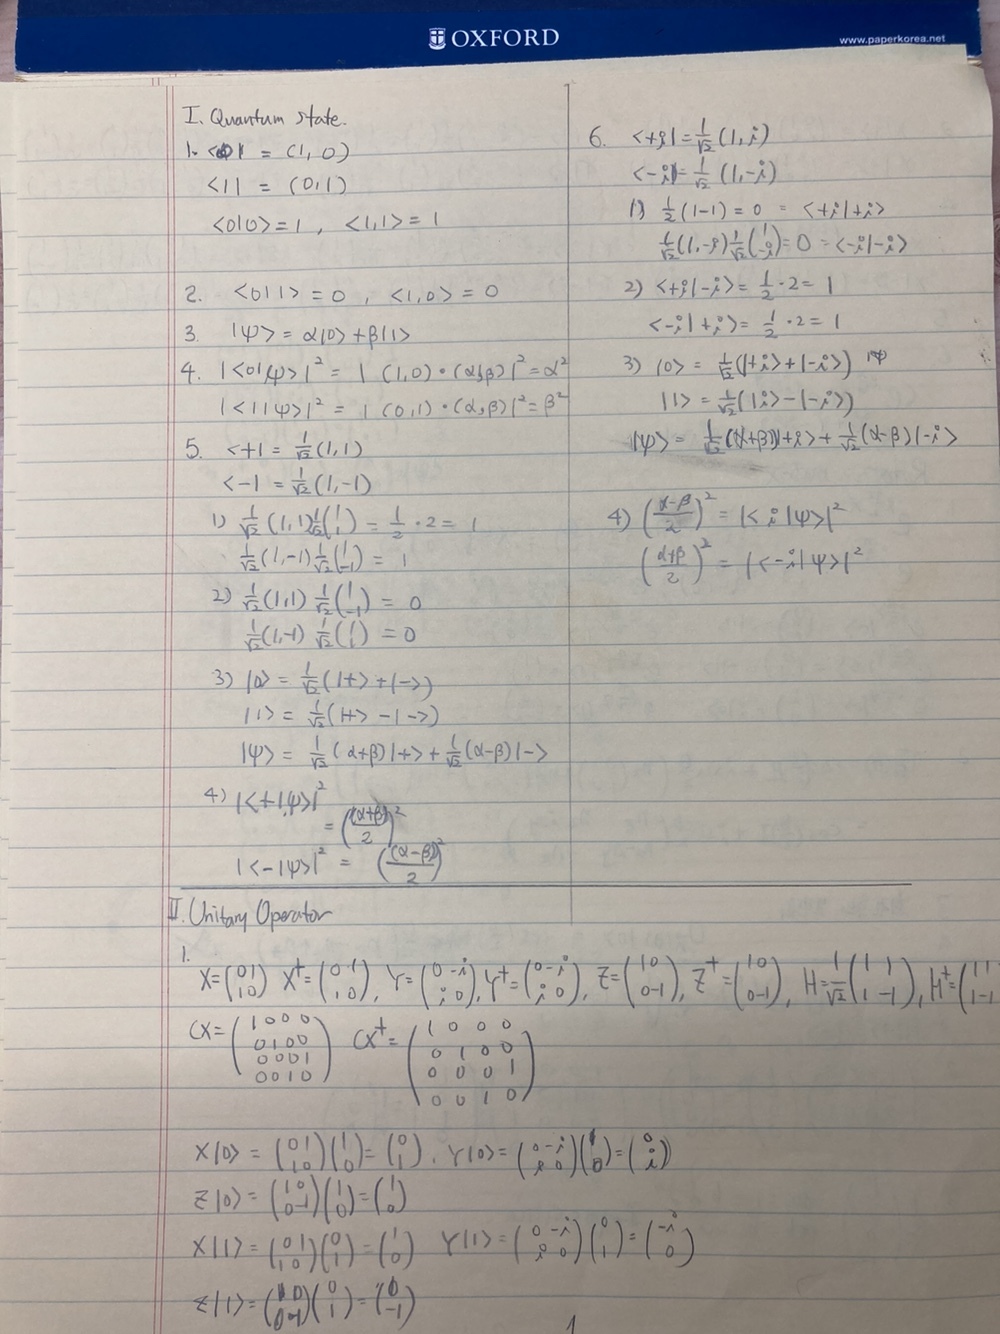 OXFORD
www.paperkorea.net
I. Quantum state.
1. <0| = (1, 0)
<1| = (0,1)
<0|0>=1 , <1,1> = 1
2. <0|1> = 0 , <1,0> = 0
3. |ψ> = α|0> + β|1>
4. |<0|ψ>|² = | (1,0)·(α,β)|² = α²
|<1|ψ>|² = | (0,1)·(α,β)|² = β²
5. <+| = 1/√2 (1,1)
<-| = 1/√2 (1,-1)
1) 1/√2 (1,1) 1/√2 (1 1) = 1/2 · 2 = 1
1/√2 (1,-1) 1/√2 (1 -1) = 1
2) 1/√2 (1,1) 1/√2 (1 -1) = 0
1/√2 (1,-1) 1/√2 (1 1) = 0
3) |0> = 1/√2 (|+> + |->)
|1> = 1/√2 (|+> - |->)
|ψ> = 1/√2 (α+β)|+> + 1/√2 (α-β)|->
4) |<+|ψ>|²
= ((α+β)/2)²
|<-|ψ>|² = ((α-β)/2)²
6. <+i| = 1/√2 (1,i)
<-i| = 1/√2 (1,-i)
1) 1/2 (1-1) = 0 = <+i|+i>
1/√2 (1,-i) 1/√2 (1 -i) = 0 = <-i|-i>
2) <+i|-i> = 1/2 · 2 = 1
<-i|+i> = 1/2 · 2 = 1
3) |0> = 1/√2 (|+i> + |-i>)
|1> = 1/√2 (|i> - |-i>)
|ψ> = 1/√2 (α+β)|+i> + 1/√2 (α-β)|-i>
4) ((α-β)/2)² = |<i|ψ>|²
((α+β)/2)² = |<-i|ψ>|²
II. Unitary Operator
1.
X = (0 1 / 1 0) X† = (0 1 / 1 0), Y = (0 -i / i 0), Y† = (0 -i / i 0), Z = (1 0 / 0 -1), Z† = (1 0 / 0 -1), H = 1/√2 (1 1 / 1 -1), H† = (1 1 / 1 -1
CX = (1 0 0 0 / 0 1 0 0 / 0 0 0 1 / 0 0 1 0) CX† = (1 0 0 0 / 0 1 0 0 / 0 0 0 1 / 0 0 1 0)
X|0> = (0 1 / 1 0)(1 / 0) = (0 / 1), Y|0> = (0 -i / i 0)(1 / 0) = (0 / i)
Z|0> = (1 0 / 0 -1)(1 / 0) = (1 / 0)
X|1> = (0 1 / 1 0)(0 / 1) = (1 / 0) Y|1> = (0 -i / i 0)(0 / 1) = (-i / 0)
Z|1> = (1 0 / 0 -1)(0 / 1) = (0 / -1)
1